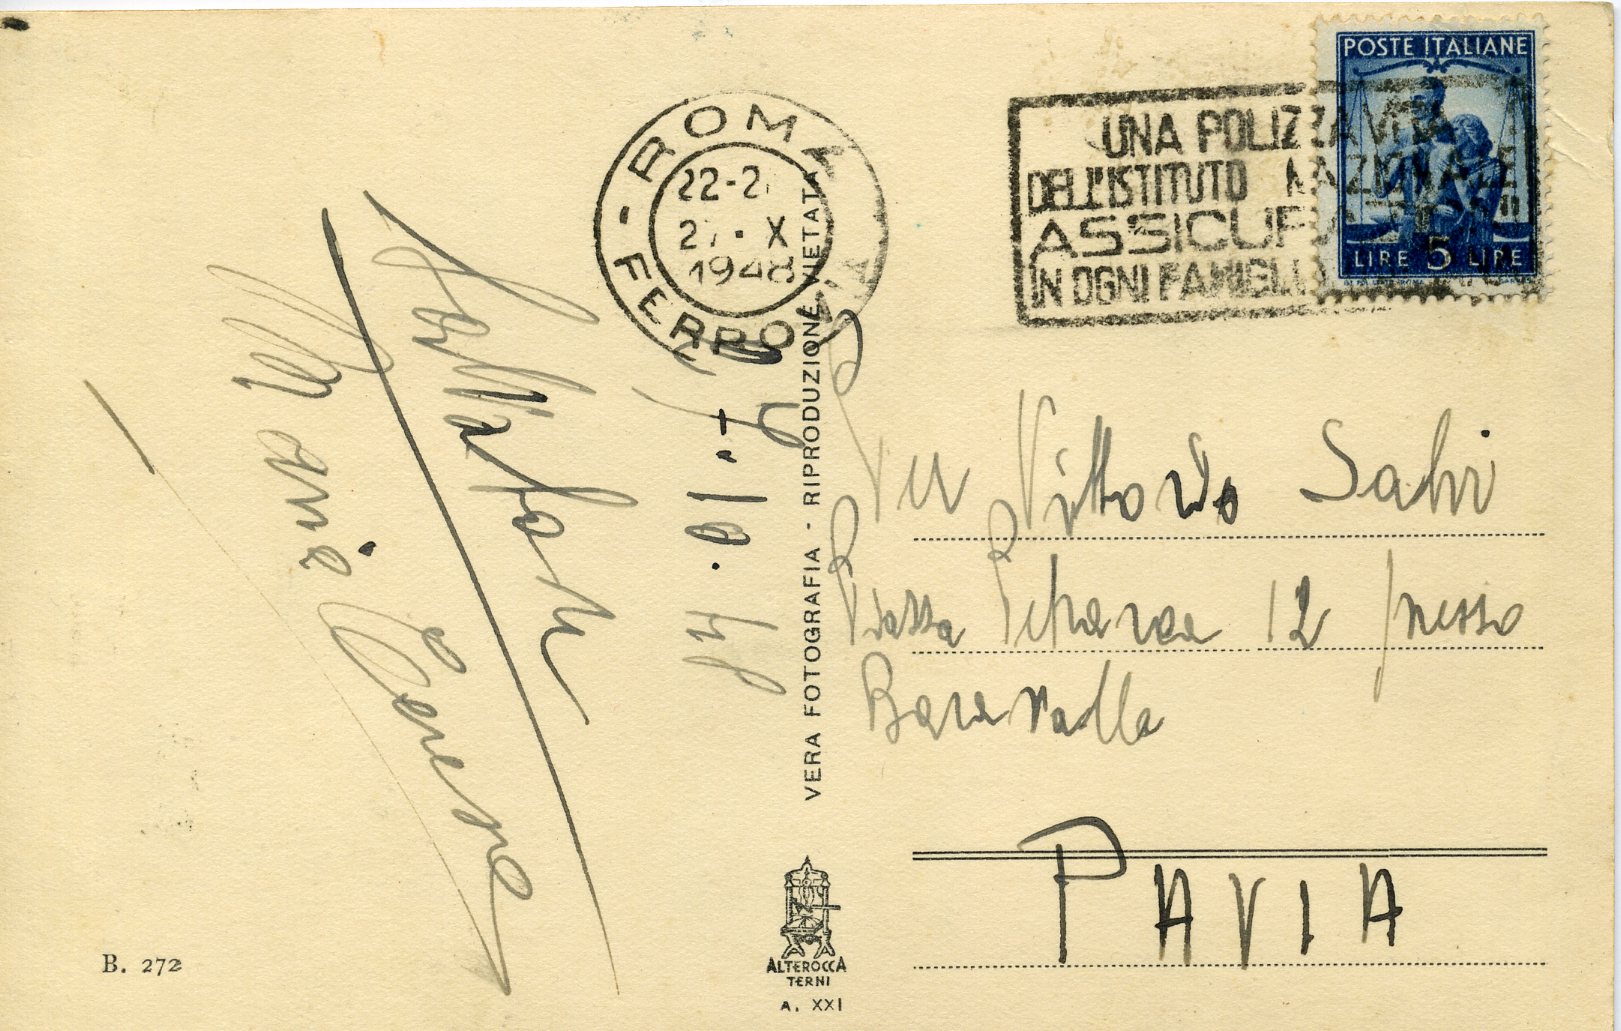 POSTE ITALIANE
LIRE 5 LIRE
ROMA
22-2
27. X
1948
FERROVIA
UNA POLIZZA VITA
DELL'ISTITUTO NAZIONALE
ASSICURAZIONI
IN OGNI FAMIGLIA
7.10.48
Maria
VERA FOTOGRAFIA - RIPRODUZIONE VIETATA
Vittorio Salvi
Piazza Petrarca 12 presso
PAVIA
B. 272
ALTEROCCA
TERNI
A. XXI